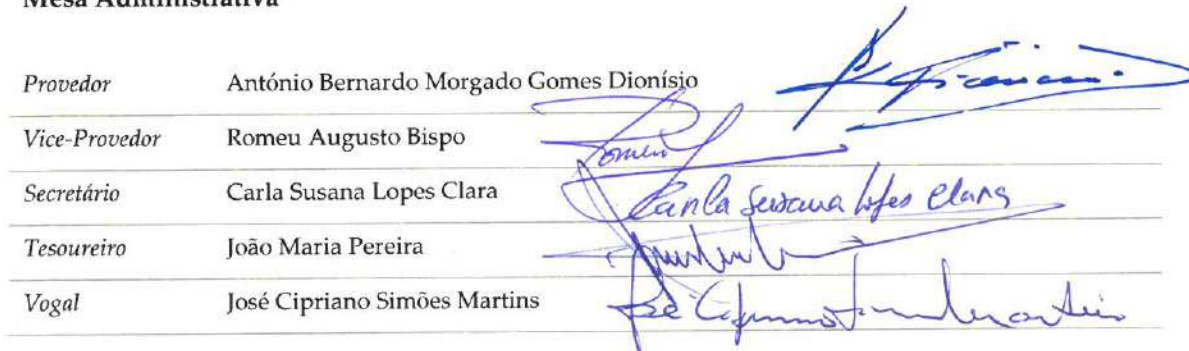 Mesa Administrativa
Provedor António Bernardo Morgado Gomes Dionísio
Vice-Provedor Romeu Augusto Bispo
Romeu
Secretário Carla Susana Lopes Clara
Carla Susana Lopes Clara
Tesoureiro João Maria Pereira
Vogal José Cipriano Simões Martins